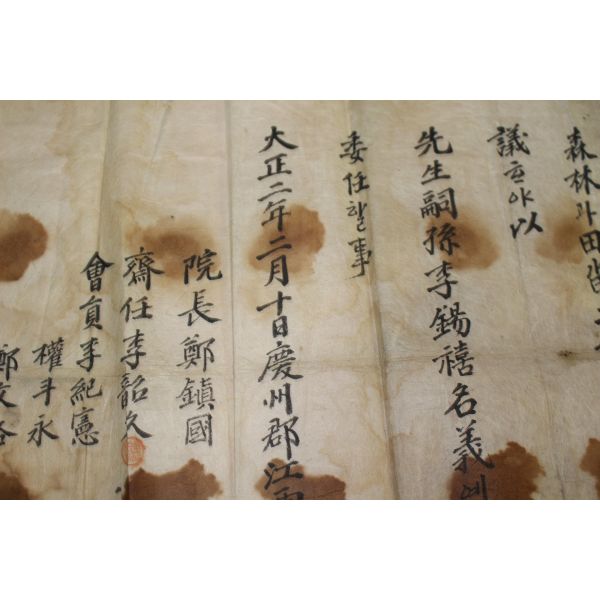 森林과田畓
議ᄒᆞ야以
先生嗣孫李錫禧名義
委任ᄒᆞᆯ事
大正二年二月十日慶州郡江
院長鄭鎮國
齋任李韶久
會員李紀憲
權斗永
鄭